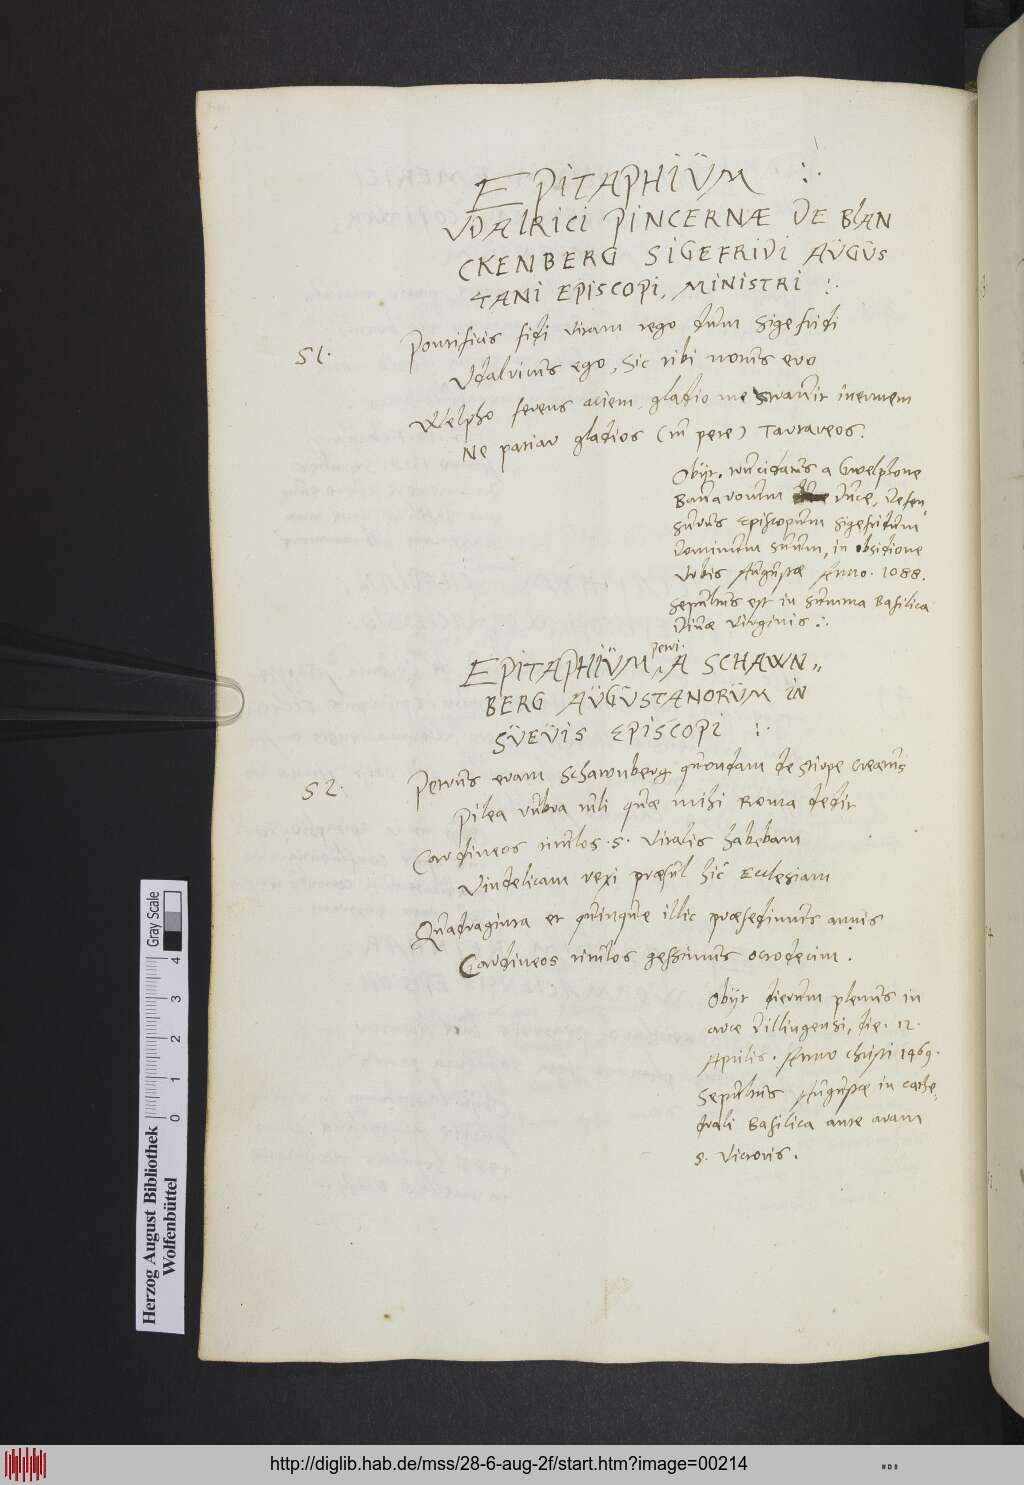 EPITAPHIÜM :.
VDALRICI PINCERNÆ DE BLAN
CKENBERG SIGEFRIDI AÜGÜS
TANI EPISCOPI, MINISTRI :.
51.
Pontificis fidi vitam rego dum Sigefridi
Vdalricus ego, sic tibi notus ero
Welpho ferens aciem, gladio me stravit inermem
Ne patiar gladios (tu pete) Tartareos.
Obijt. trucidatus a Gwelphone
Bauarorum Duce, Defen-
surus Episcopum Sigefridum
Dominum suum, in obsidione
Vrbis Augustæ Anno. 1088.
Sepultus est in summa Basilica
Diuæ Virginis :.
EPITAPHIÜM Petri. A SCHAWN„
BERG AÜGÜSTANORÜM IN
SÜEÜIS EPISCOPI :.
52.
Petrus eram Schawnberg quondam de stirpe creatus
Pilea rubra tuli quæ mihi Roma dedit
Cardineos titulos. S. Vitalis habebam
Vindelicam rexi præsul hic Ecclesiam
Quadraginta et quinque illic præsedimus annis
Cardineos titulos gessimus octodecim.
Obijt dierum plenus in
arce Dillingensi, die. 12.
Aprilis. Anno Christi 1469.
Sepultus Augustæ in cathe-
drali Basilica ante aram
S. Victoris.
Herzog August Bibliothek
Wolfenbüttel
0 1 2 3 4
Gray Scale
http://diglib.hab.de/mss/28-6-aug-2f/start.htm?image=00214